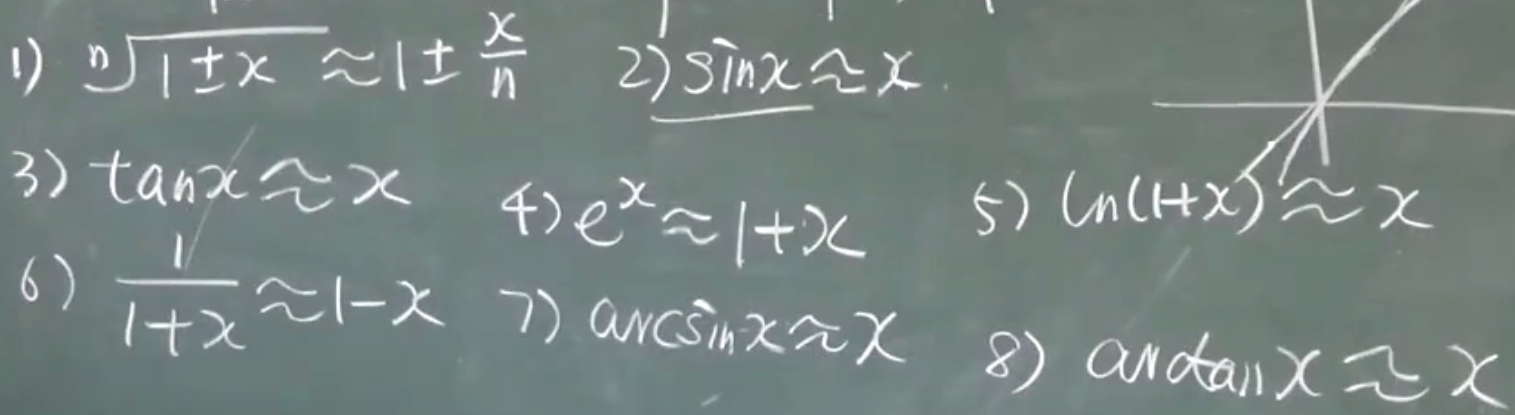 1) ⁿ√(1±x) ≈ 1 ± x/n 2) sinx ≈ x
3) tanx ≈ x 4) eˣ ≈ 1+x 5) ln(1+x) ≈ x
6) 1/(1+x) ≈ 1-x 7) arcsinx ≈ x 8) arctanx ≈ x